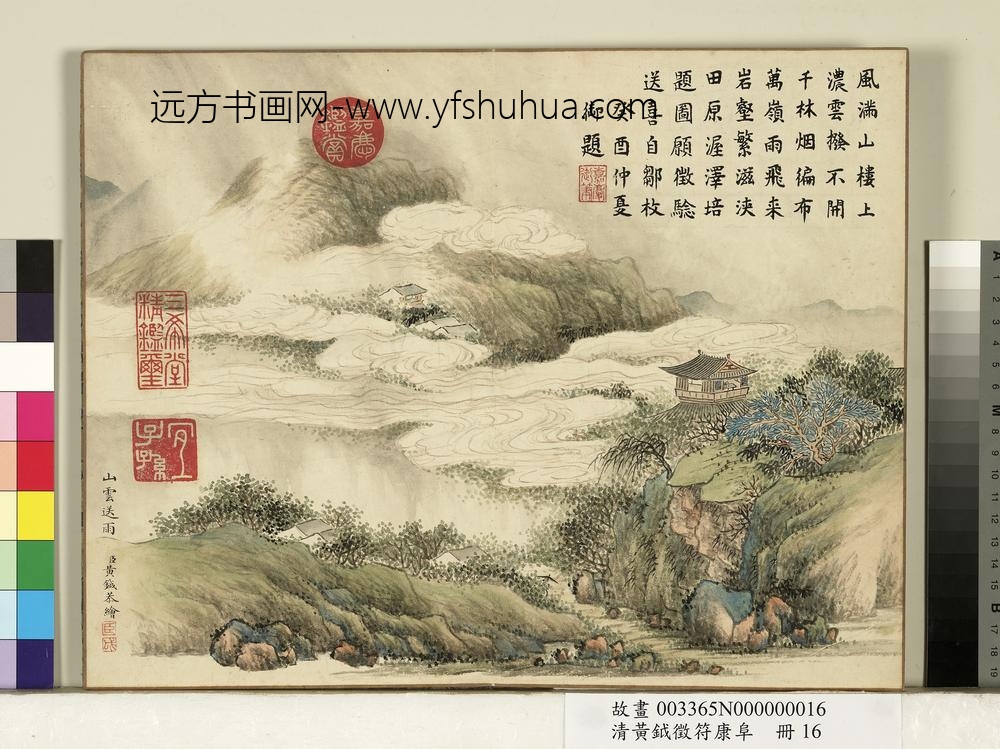 風满山樓上
濃雲撥不開
千林烟徧布
萬嶺雨飛来
岩壑繁滋浹
田原渥澤培
題圖願徵驗
送喜自鄒枚
癸酉仲夏
御題
远方书画网-www.yfshuhua.com
嘉慶鑑賞
三希堂精鑑璽
宜子孫
山雲送雨
臣黃鉞恭繪
故畫 003365N000000016
清黃鉞徵符康阜 冊 16
A
2
3
4
5
M
8
9
10
11
12
13
14
15
B
17
18
19